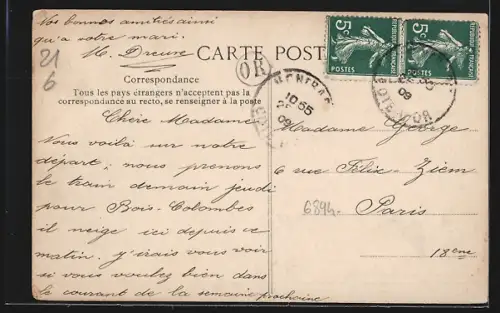 Vos bonnes amitiés ainsi
qu'a votre mari.
M. Dreure
21
6
CARTE POST
Correspondance
Tous les pays étrangers n'acceptent pas la
correspondance au recto, se renseigner à la poste
OR
10 55
09
5c
POSTES
5c
POSTES
COTE-D'OR
09
Chère Madame
Nous voilà sur notre
départ; nous prenons
le train demain jeudi
pour Bois-Colombes
il neige ici depuis ce
matin. j'irais vous voir
si vous voulez bien dans
le courant de la semaine prochaine
Madame George
6 rue Félix-Ziem
6894.
Paris
18eme